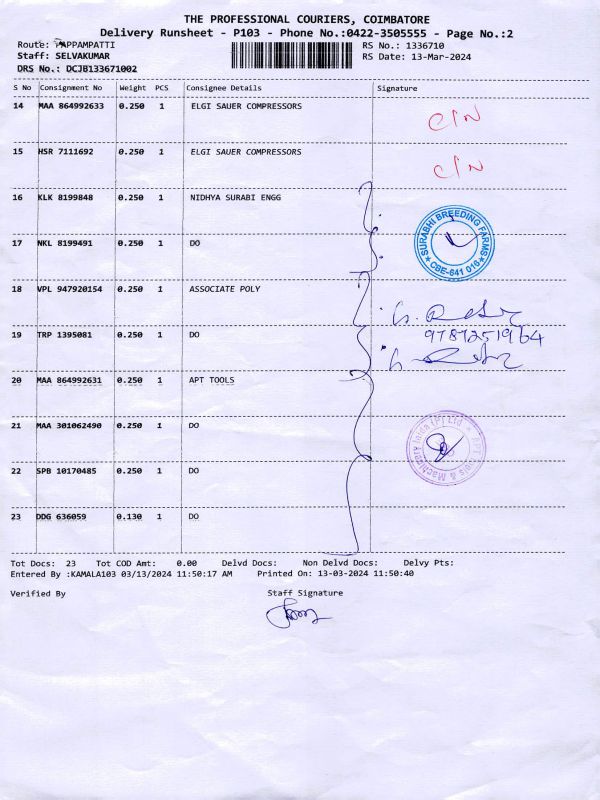 THE PROFESSIONAL COURIERS, COIMBATORE
Delivery Runsheet - P103 - Phone No.:0422-3505555 - Page No.:2
Route: PAPPAMPATTI RS No.: 1336710
Staff: SELVAKUMAR RS Date: 13-Mar-2024
DRS No.: DCJB133671002
S No Consignment No Weight PCS Consignee Details Signature
14 MAA 864992633 0.250 1 ELGI SAUER COMPRESSORS
C/N
15 HSR 7111692 0.250 1 ELGI SAUER COMPRESSORS
C/N
16 KLK 8199848 0.250 1 NIDHYA SURABI ENGG
SURABHI BREEDING FARMS
CBE-641 016
17 NKL 8199491 0.250 1 DO
18 VPL 947920154 0.250 1 ASSOCIATE POLY
19 TRP 1395081 0.250 1 DO
20 MAA 864992631 0.250 1 APT TOOLS
21 MAA 301062490 0.250 1 DO
APT Tools & Machinery India (P) Ltd
22 SPB 10170485 0.250 1 DO
23 DDG 636059 0.130 1 DO
Tot Docs: 23 Tot COD Amt: 0.00 Delvd Docs: Non Delvd Docs: Delvy Pts:
Entered By :KAMALA103 03/13/2024 11:50:17 AM Printed On: 13-03-2024 11:50:40
Verified By Staff Signature